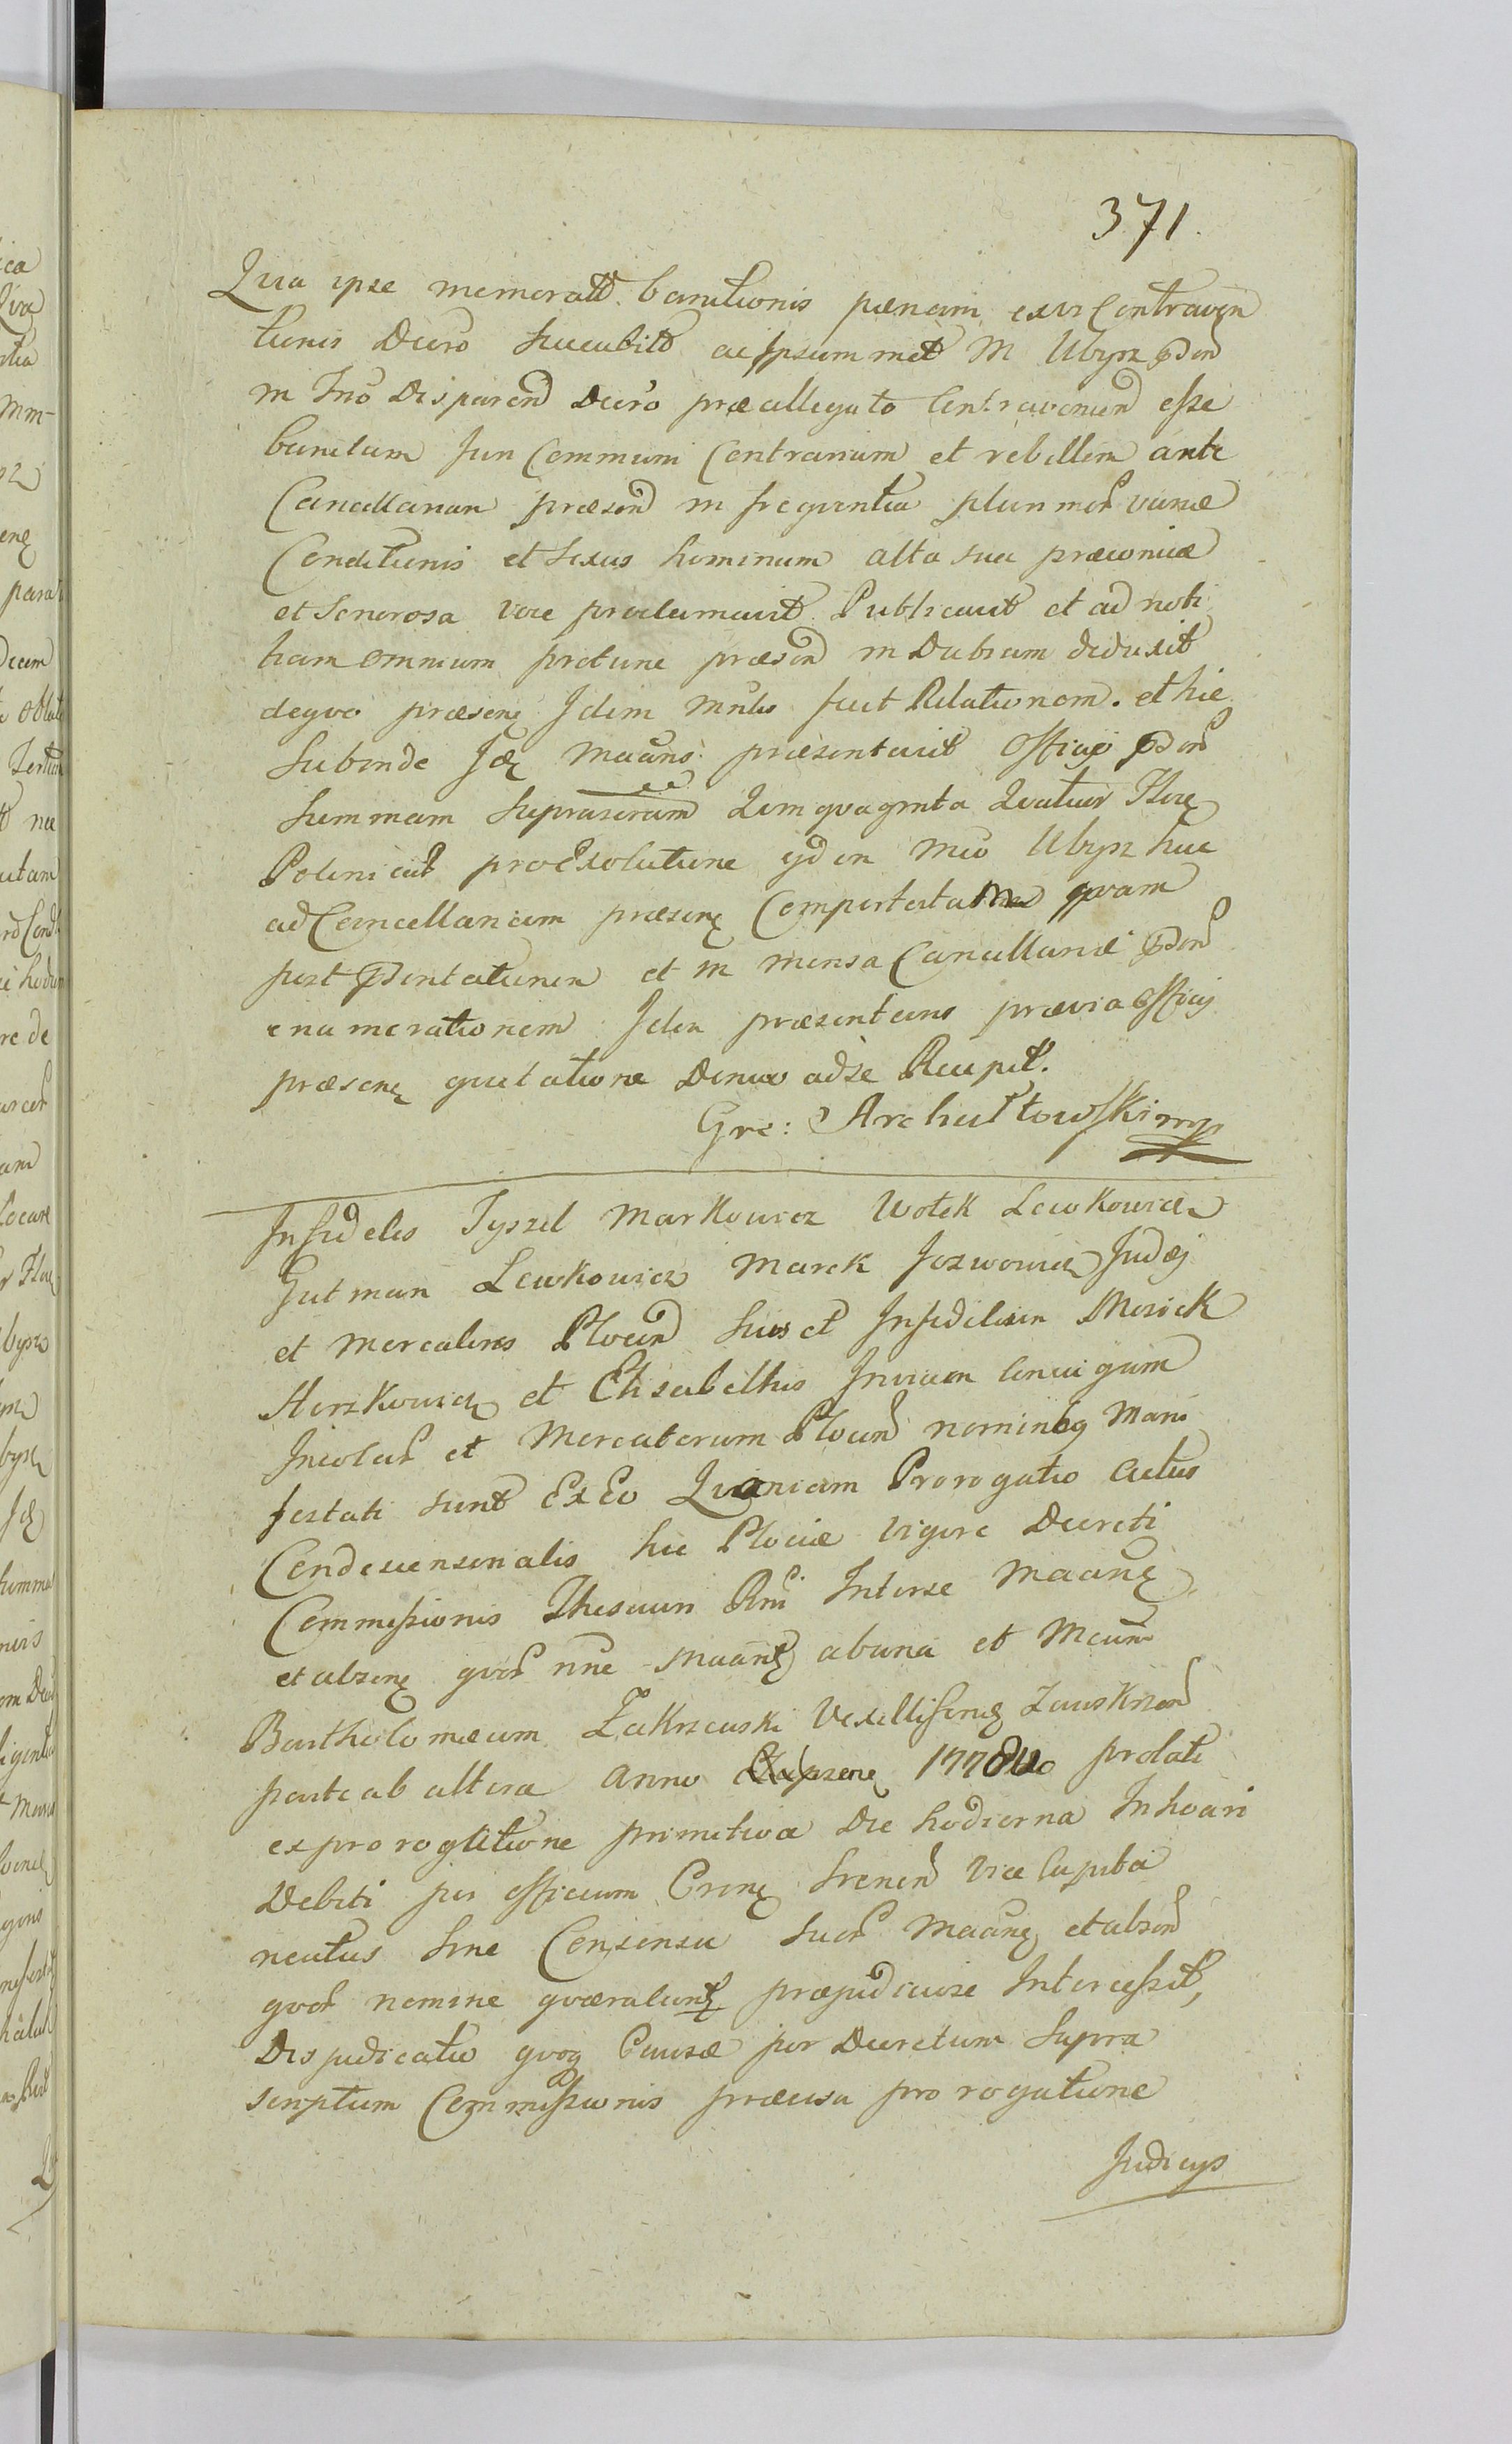 371.
Qua ipse memoratt. banitionis pænam exvi Contraven
tionis Decro succubitt ac ipsum met M Ubysz pden
in Ino Disparend Decro præallegato Contraveniend esse
banitum Juri Communi Contrarium et rebellem ante
Cancellariam præsend in frequentia plurimor variæ
Conditionis et sexus hominum alta sua præconica
et Sonorosa voce proclamavit Publicavit et ad noti
tiam omnium protunc præsend in Dubiam deduxit
deqvo præsens Idem Mnlis fecit Relationem. et hic
Subinde Id Maans præsentavit Officio pden
Summam Suprascram Quinquaginta Quatuor Flor
Polonical pro Exolutione ejden Mco Ubysz huc
ad Cancellariam præsens Comportatam qvam
post pdentationem et in mensa Cancellariæ pden
enumerationem Iden præsentans prævia Officij
præsens quietatione Denuo adse Recepit.
Gre: Archutowski mp
Infideles Jyszel Markowicz Wolek Lewkowicz
Gutman Lewkowicz Marek Jozwowicz Judæj
et Mercatores Plocen Suis et Infidelium Mosiek
Herszkowicz et Elisabethis Invicem Conuigum
Incolar et Mercatorum Plocen nominibq Mani
festati sunt Ex Eo Quoniam Prorogatio Actus
Condescensionalis hic Plociæ vigore Decreti
Commissionis Thesauri Rni Interse Maans
et absens qvor nne Maants abuna et Mcum
Bartholomæum Zakrzewski Vexilliferum Zawskrzen
parte ab altera Anno Elapsene 1778vo prolati
ex prorogatione primitiva Die hodierna Inhoari
Debiti per officium Crens Srenen Vice Capita
neatus Sine Consensu Suor Maans et absen
qvor nomine qværulants præjudiciose Intercessit,
Disjudicatio qvoq Causæ per Decretum Supra
scriptum Commissionis præcisa prorogatione
Judicijs